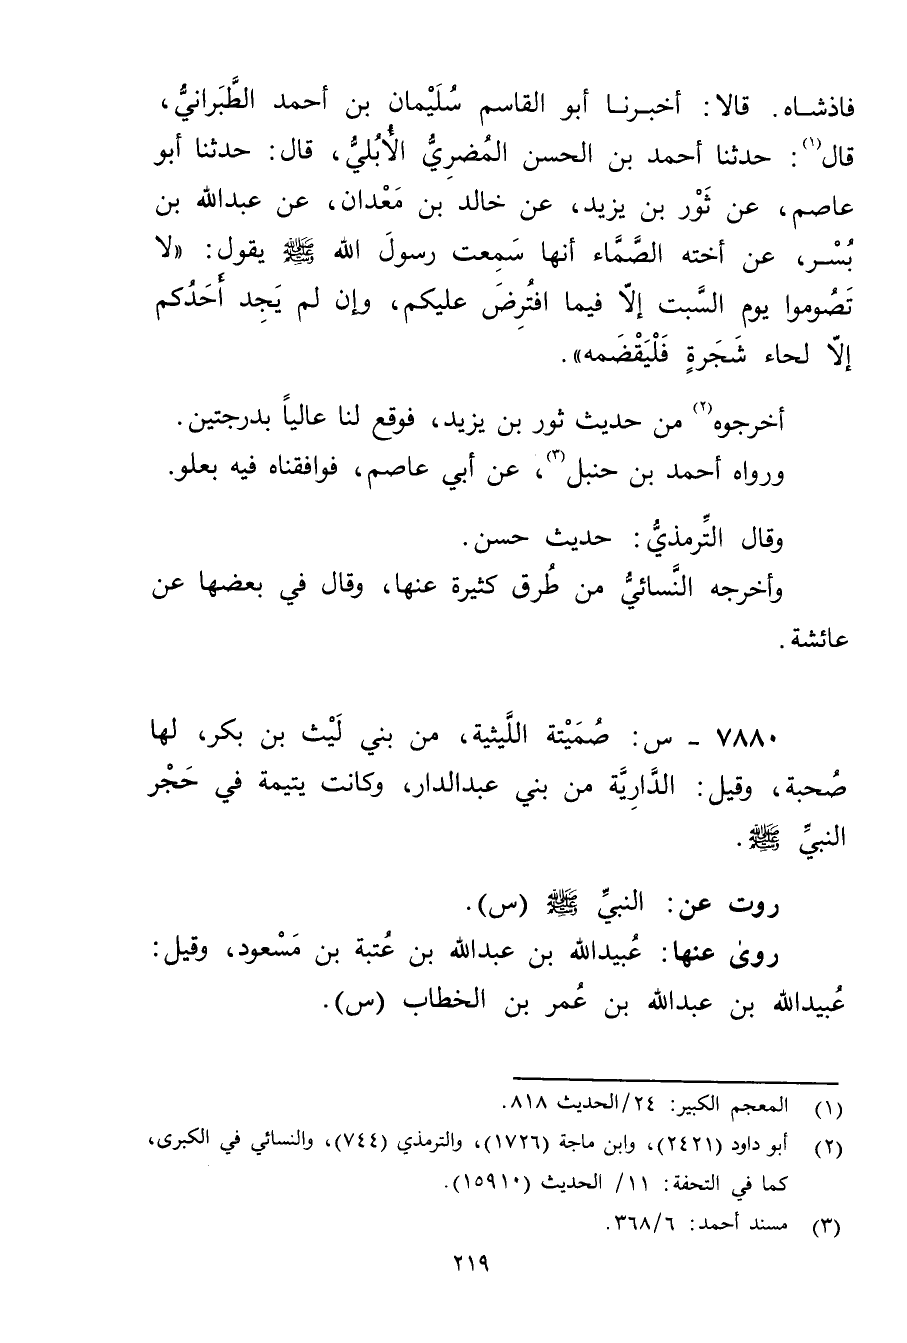 فاذشـاه. قالا: أخبـرنـا أبو القاسم سُلَيْمان بن أحمد الطَّبَرانيُّ،
قال(١): حدثنا أحمد بن الحسن المُضرِيُّ الأُبُليُّ، قال: حدثنا أبو
عاصم، عن ثَوْر بن يزيد، عن خالد بن مَعْدان، عن عبدالله بن
بُسْـر، عن أخته الصَّمَّاء أنها سَمِعت رسولَ الله ﷺ يقول: «لا
تَصُوموا يوم السَّبت إلّا فيما افتُرِضَ عليكم، وإن لم يَجِد أَحَدُكم
إلّا لحاء شَجَرةٍ فَلْيَقْضَمه».
أخرجوه(٢) من حديث ثور بن يزيد، فوقع لنا عالياً بدرجتين.
ورواه أحمد بن حنبل(٣)، عن أبي عاصم، فوافقناه فيه بعلو.
وقال التِّرمذيُّ: حديث حسن.
وأخرجه النَّسائيُّ من طُرق كثيرة عنها، وقال في بعضها عن
عائشة.
٧٨٨٠ - س: صُمَيْتة اللَّيثية، من بني لَيْث بن بكر، لها
صُحبة، وقيل: الدَّارِيَّة من بني عبدالدار، وكانت يتيمة في حَجْر
النبيِّ ﷺ.
روت عن: النبيِّ ﷺ (س).
روىٰ عنها: عُبيدالله بن عبدالله بن عُتبة بن مَسْعود، وقيل:
عُبيدالله بن عبدالله بن عُمر بن الخطاب (س).
(١) المعجم الكبير: ٢٤/الحديث ٨١٨.
(٢) أبو داود (٢٤٢١)، وابن ماجة (١٧٢٦)، والترمذي (٧٤٤)، والنسائي في الكبرى،
كما في التحفة: ١١/ الحديث (١٥٩١٠).
(٣) مسند أحمد: ٣٦٨/٦.
٢١٩